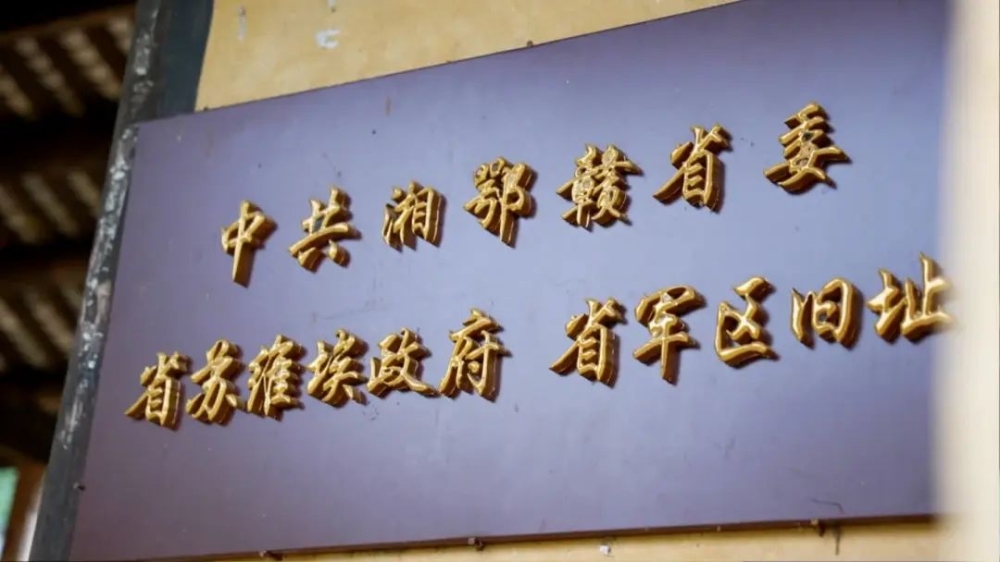 中共湘鄂赣省委
省苏维埃政府 省军区旧址